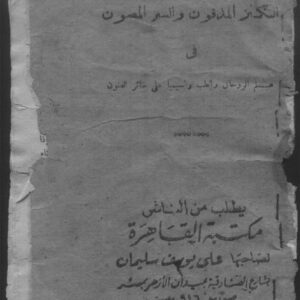 الكنز المدفون والسر المصون
فى
علم الروحانى والطب والسيميا على سائر الفنون
يطلب من الناشر
مكتبة القاهرة
لصاحبها على يوسف سليمان
بشارع الصنادقية بميدان الأزهر بمصر